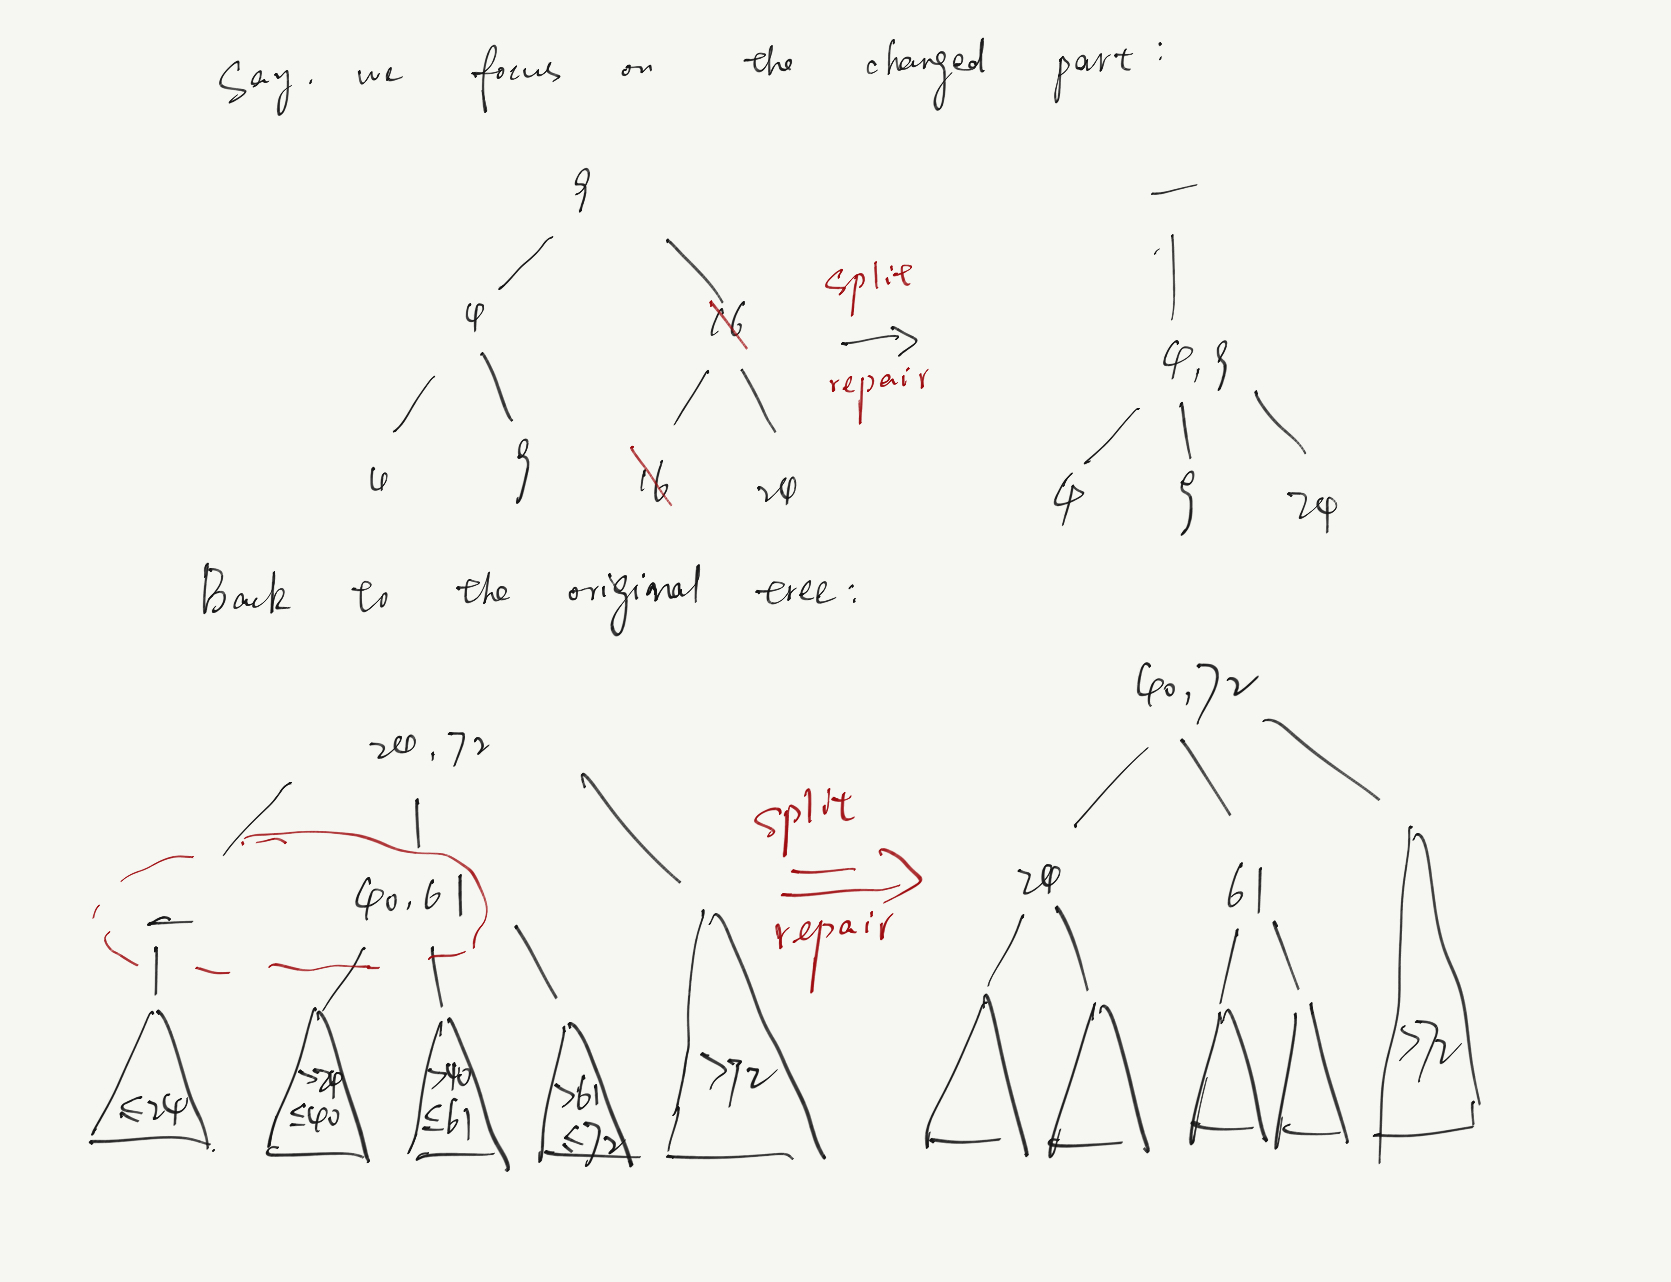 Say. we focus on the changed part:
9
4 16
split
repair
4 9 16 24
—
4,9
4 9 24
Back to the original tree:
24,72
— 40,61
≤24
>24
≤40
>40
≤61
>61
≤72
>72
split
repair
40,72
24 61
>72